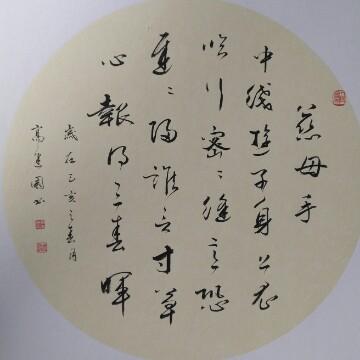 慈母手
中綫遊子身上衣
臨行密〻縫意恐
遲〻歸誰言寸草
心報得三春暉
歲在己亥之春月
高國書